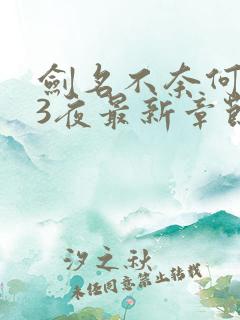 劍名不奈何
3夜最新章節
汐之秋
未經同意禁止轉載